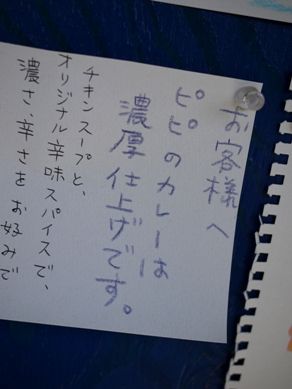 お客様へ
ピピのカレーは
濃厚仕上げです。
チキンスープと、
オリジナル辛味スパイスで、
濃さ、辛さをお好みで